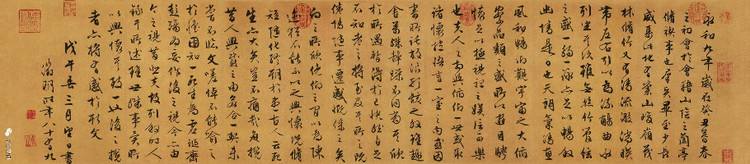 永和九年歲在癸丑暮春
初會于會稽山陰之蘭亭
脩禊事也羣賢畢至少長
咸集此地有崇山峻領茂
林脩竹又有清流激湍映
帶左右引以為流觴曲水
列坐其次雖無絲竹管弦
之盛一觴一詠亦足以暢敘
幽情是日也天朗氣清惠
風和暢仰觀宇宙之大俯
察品類之盛所以遊目騁
懷足以極視聽之娛信可樂
也夫人之相與俯仰一世或取
諸懷抱悟言一室之內或因
寄所託放浪形骸之外雖趣
舍萬殊靜躁不同當其欣
於所遇暫得於己怏然自足
不知老之將至及其所之既
惓情隨事遷感慨係之矣
向之所欣俛仰之間以為陳
迹猶不能不以之興懷況脩
短隨化終期於盡古人云死
生亦大矣豈不痛哉每攬
昔人興感之由若合一契未
嘗不臨文嗟悼不能喻之
於懷固知一死生為虛誕齊
彭殤為妄作後之視今亦由
今之視昔悲夫故列敘時人
錄其所述雖世殊事異所
以興懷其致一也後之攬
者亦將有感於斯文
戊午春三月望日書
徵明時年八十有九